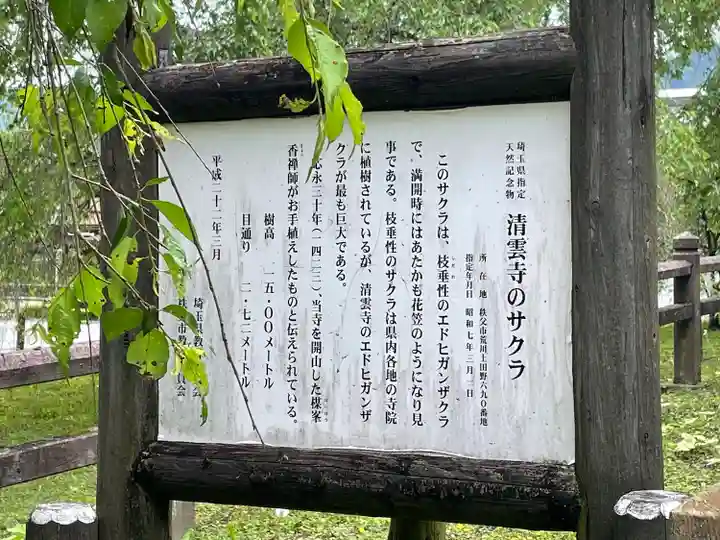 埼玉県指定
天然記念物
清雲寺のサクラ
所在地 秩父市荒川上田野六九〇番地
指定年月日 昭和七年三月二日
このサクラは、枝垂性のエドヒガンザクラ
で、満開時にはあたかも花笠のようになり見
事である。枝垂性のサクラは県内各地の寺院
に植樹されているが、清雲寺のエドヒガンザ
クラが最も巨大である。
永三十年(一四二三)、当寺を開山した楳峯
香禅師がお手植えしたものと伝えられている。
樹高 一五・〇〇メートル
目通り 二・七二メートル
平成二十二年三月
埼玉県教 会
秩父市教 員会